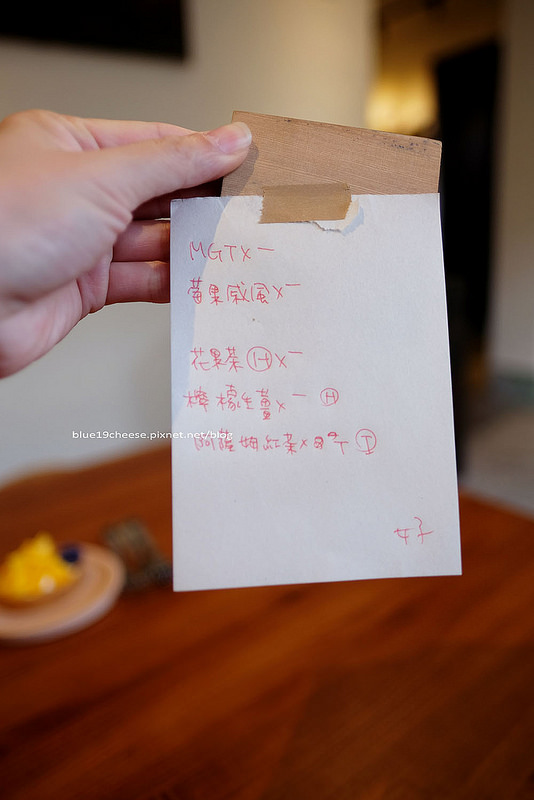 MGT X 一
莓果戚風 X 一
花果茶 Ⓗ X 一
檸檬生薑 X 一 Ⓗ
blue19cheese.pixnet.net/blog
阿薩姆紅茶 X Ⓘ
好